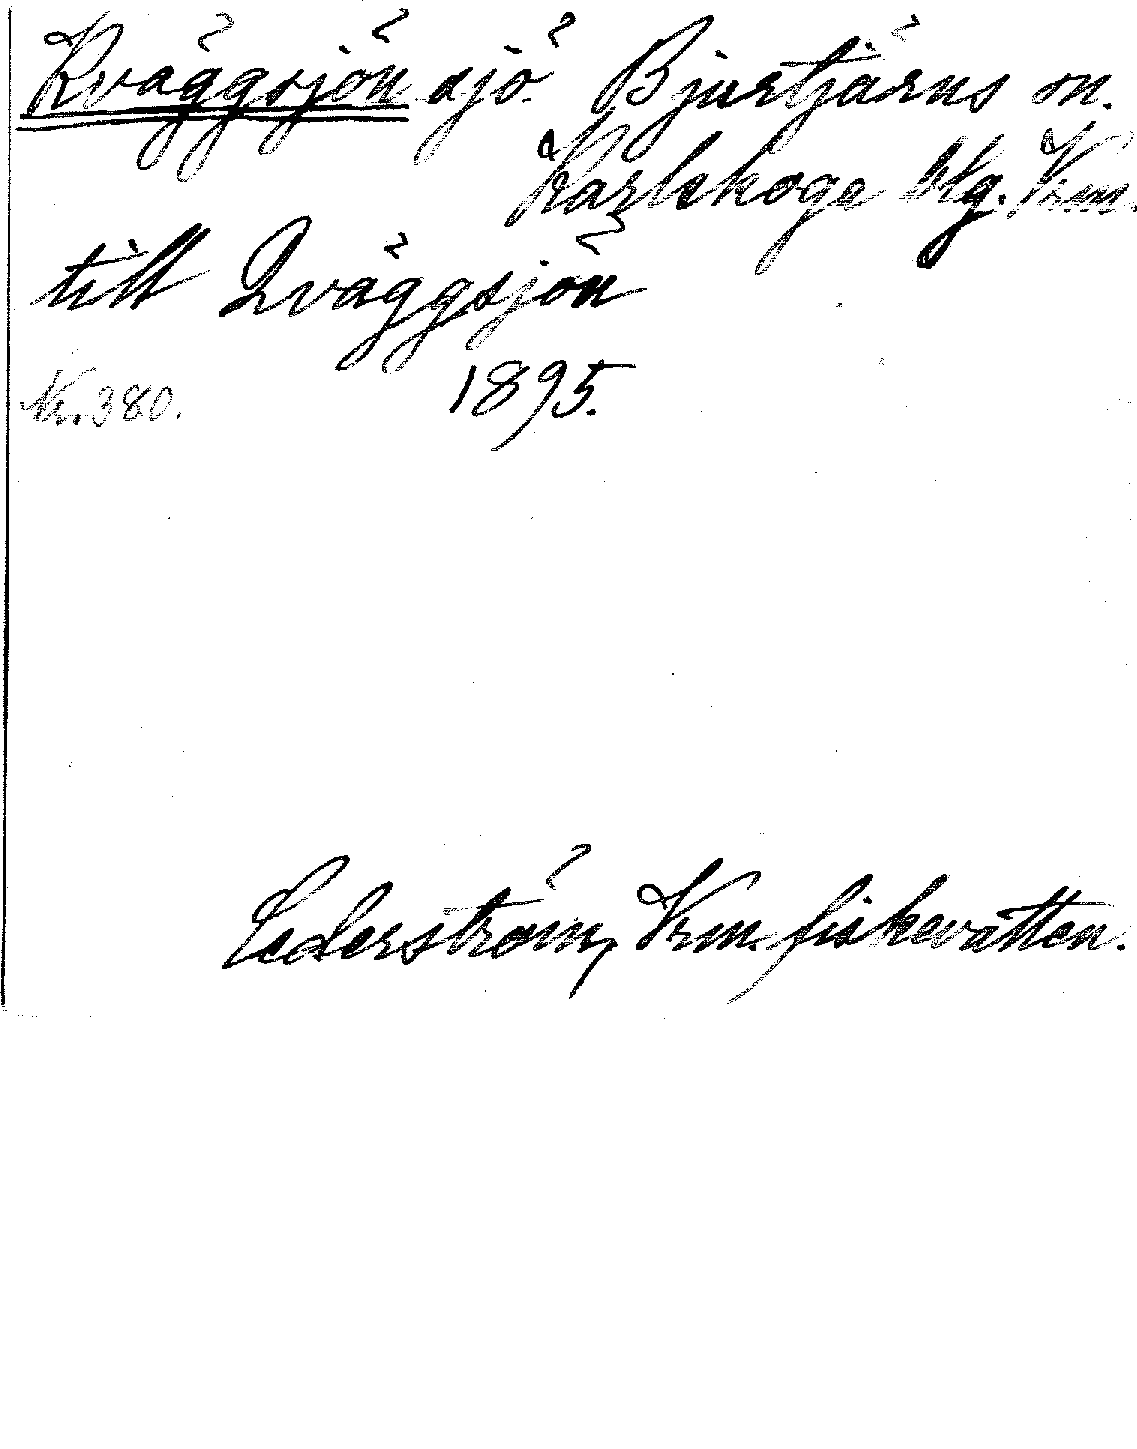 Kväggsjön sjö Bjurtjärns sn.
Karlskoga blg. Vrm.
till Qväggsjön
Nr. 380. 1895.
Cederström, Vrm. fiskevatten.